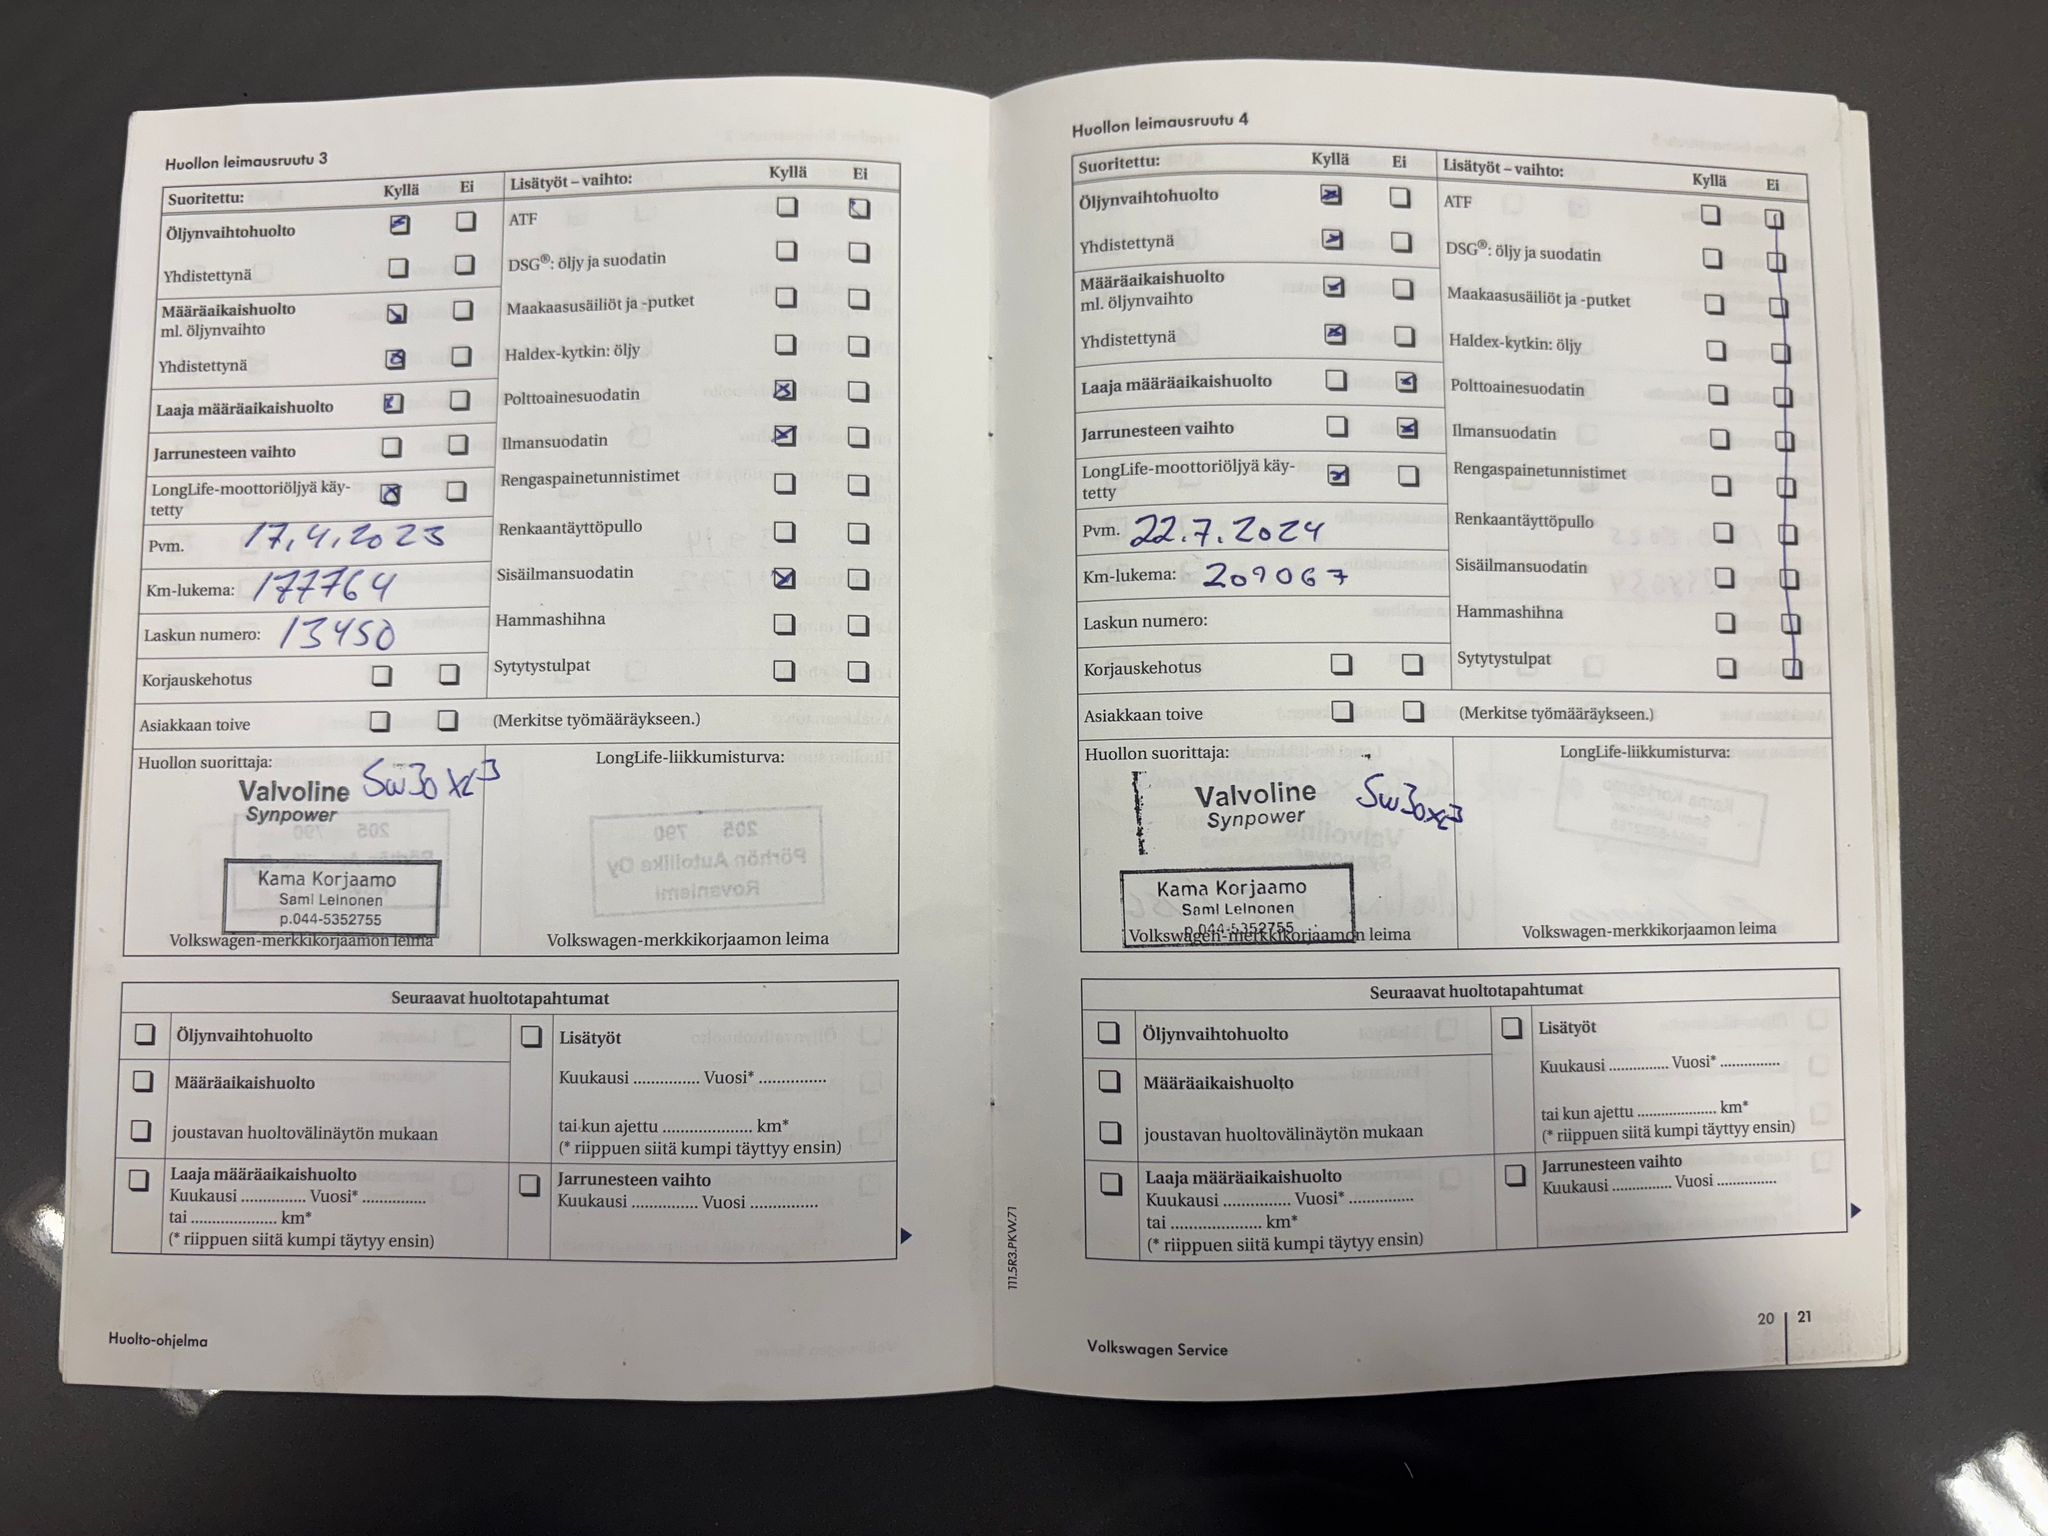 Huollon leimausruutu 3
Suoritettu: Kyllä Ei
Öljynvaihtohuolto
Yhdistettynä
Määräaikaishuolto
ml. öljynvaihto
Yhdistettynä
Laaja määräaikaishuolto
Jarrunesteen vaihto
LongLife-moottoriöljyä käy-
tetty
Pvm. 17.4.2023
Km-lukema: 177764
Laskun numero: 13450
Korjauskehotus
Lisätyöt – vaihto: Kyllä Ei
ATF
DSG®: öljy ja suodatin
Maakaasusäiliöt ja -putket
Haldex-kytkin: öljy
Polttoainesuodatin
Ilmansuodatin
Rengaspainetunnistimet
Renkaantäyttöpullo
Sisäilmansuodatin
Hammashihna
Sytytystulpat
Asiakkaan toive (Merkitse työmääräykseen.)
Huollon suorittaja:
Valvoline 5w30 xl3
Synpower
Kama Korjaamo
Sami Leinonen
p.044-5352755
Volkswagen-merkkikorjaamon leima
LongLife-liikkumisturva:
Volkswagen-merkkikorjaamon leima
Seuraavat huoltotapahtumat
Öljynvaihtohuolto
Määräaikaishuolto
joustavan huoltovälinäytön mukaan
Laaja määräaikaishuolto
Kuukausi ............... Vuosi* ...............
tai .................... km*
(* riippuen siitä kumpi täytyy ensin)
Lisätyöt
Kuukausi ............... Vuosi* ...............
tai kun ajettu .................... km*
(* riippuen siitä kumpi täyttyy ensin)
Jarrunesteen vaihto
Kuukausi ............... Vuosi ...............
Huolto-ohjelma
111.5R3.PKW.71
Huollon leimausruutu 4
Suoritettu: Kyllä Ei
Öljynvaihtohuolto
Yhdistettynä
Määräaikaishuolto
ml. öljynvaihto
Yhdistettynä
Laaja määräaikaishuolto
Jarrunesteen vaihto
LongLife-moottoriöljyä käy-
tetty
Pvm. 22.7.2024
Km-lukema: 209067
Laskun numero:
Korjauskehotus
Lisätyöt – vaihto: Kyllä Ei
ATF
DSG®: öljy ja suodatin
Maakaasusäiliöt ja -putket
Haldex-kytkin: öljy
Polttoainesuodatin
Ilmansuodatin
Rengaspainetunnistimet
Renkaantäyttöpullo
Sisäilmansuodatin
Hammashihna
Sytytystulpat
Asiakkaan toive (Merkitse työmääräykseen.)
Huollon suorittaja:
Valvoline 5w30xl3
Synpower
Kama Korjaamo
Sami Leinonen
p.044-5352755
Volkswagen-merkkikorjaamon leima
LongLife-liikkumisturva:
Volkswagen-merkkikorjaamon leima
Seuraavat huoltotapahtumat
Öljynvaihtohuolto
Määräaikaishuolto
joustavan huoltovälinäytön mukaan
Laaja määräaikaishuolto
Kuukausi ............... Vuosi* ...............
tai .................... km*
(* riippuen siitä kumpi täytyy ensin)
Lisätyöt
Kuukausi ............... Vuosi* ...............
tai kun ajettu .................... km*
(* riippuen siitä kumpi täyttyy ensin)
Jarrunesteen vaihto
Kuukausi ............... Vuosi ...............
Volkswagen Service
20 21